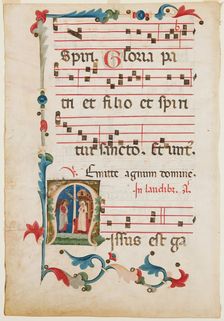 Spiri. Gloria pa
tri et filio et spiri
tui sancto. Et iuit.
V. Emitte agnum domine.
In laudibz. a.
issus est ga